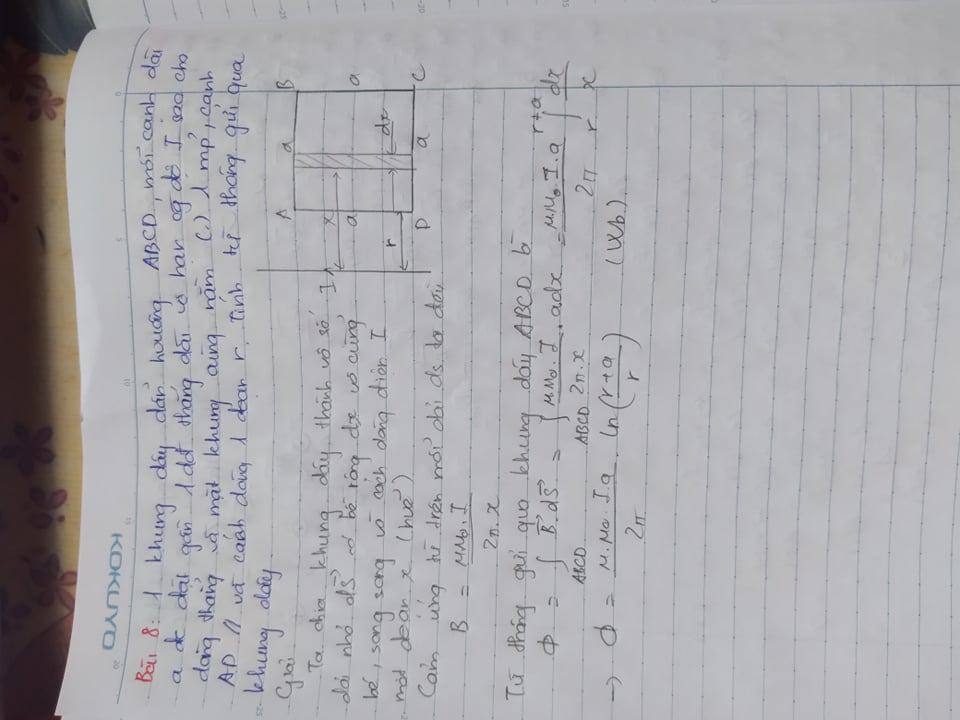 KOKUYO
Bài 8: 1 khung dây dẫn vuông ABCD, mỗi cạnh dài
a đc đặt gần 1 dđ thẳng dài vô hạn cg độ I sao cho
dòng thẳng và mặt khung cùng nằm (.) 1 mp', cạnh
AD // và cách dòng 1 đoạn r. Tính từ thông gửi qua
khung dây.
Giải
Ta chia khung dây thành vô số
dải nhỏ dS⃗ có bề rộng dx vô cùng
bé, song song và cách dòng điện I
một đoạn x (hvẽ)
A a B
I x
a a
r dx
D a C
Cảm ứng từ trên mỗi dải ds ta đc
B = μμ₀.I / 2π.x
Từ thông gửi qua khung dây ABCD là
Φ = ∫_ABCD B⃗.dS⃗ = ∫_ABCD μμ₀.I / 2π.x . adx = μ.μ₀.I.a / 2π ∫_r^{r+a} dx / x
→ Φ = μ.μ₀.I.a / 2π . ln((r+a) / r) (Wb)